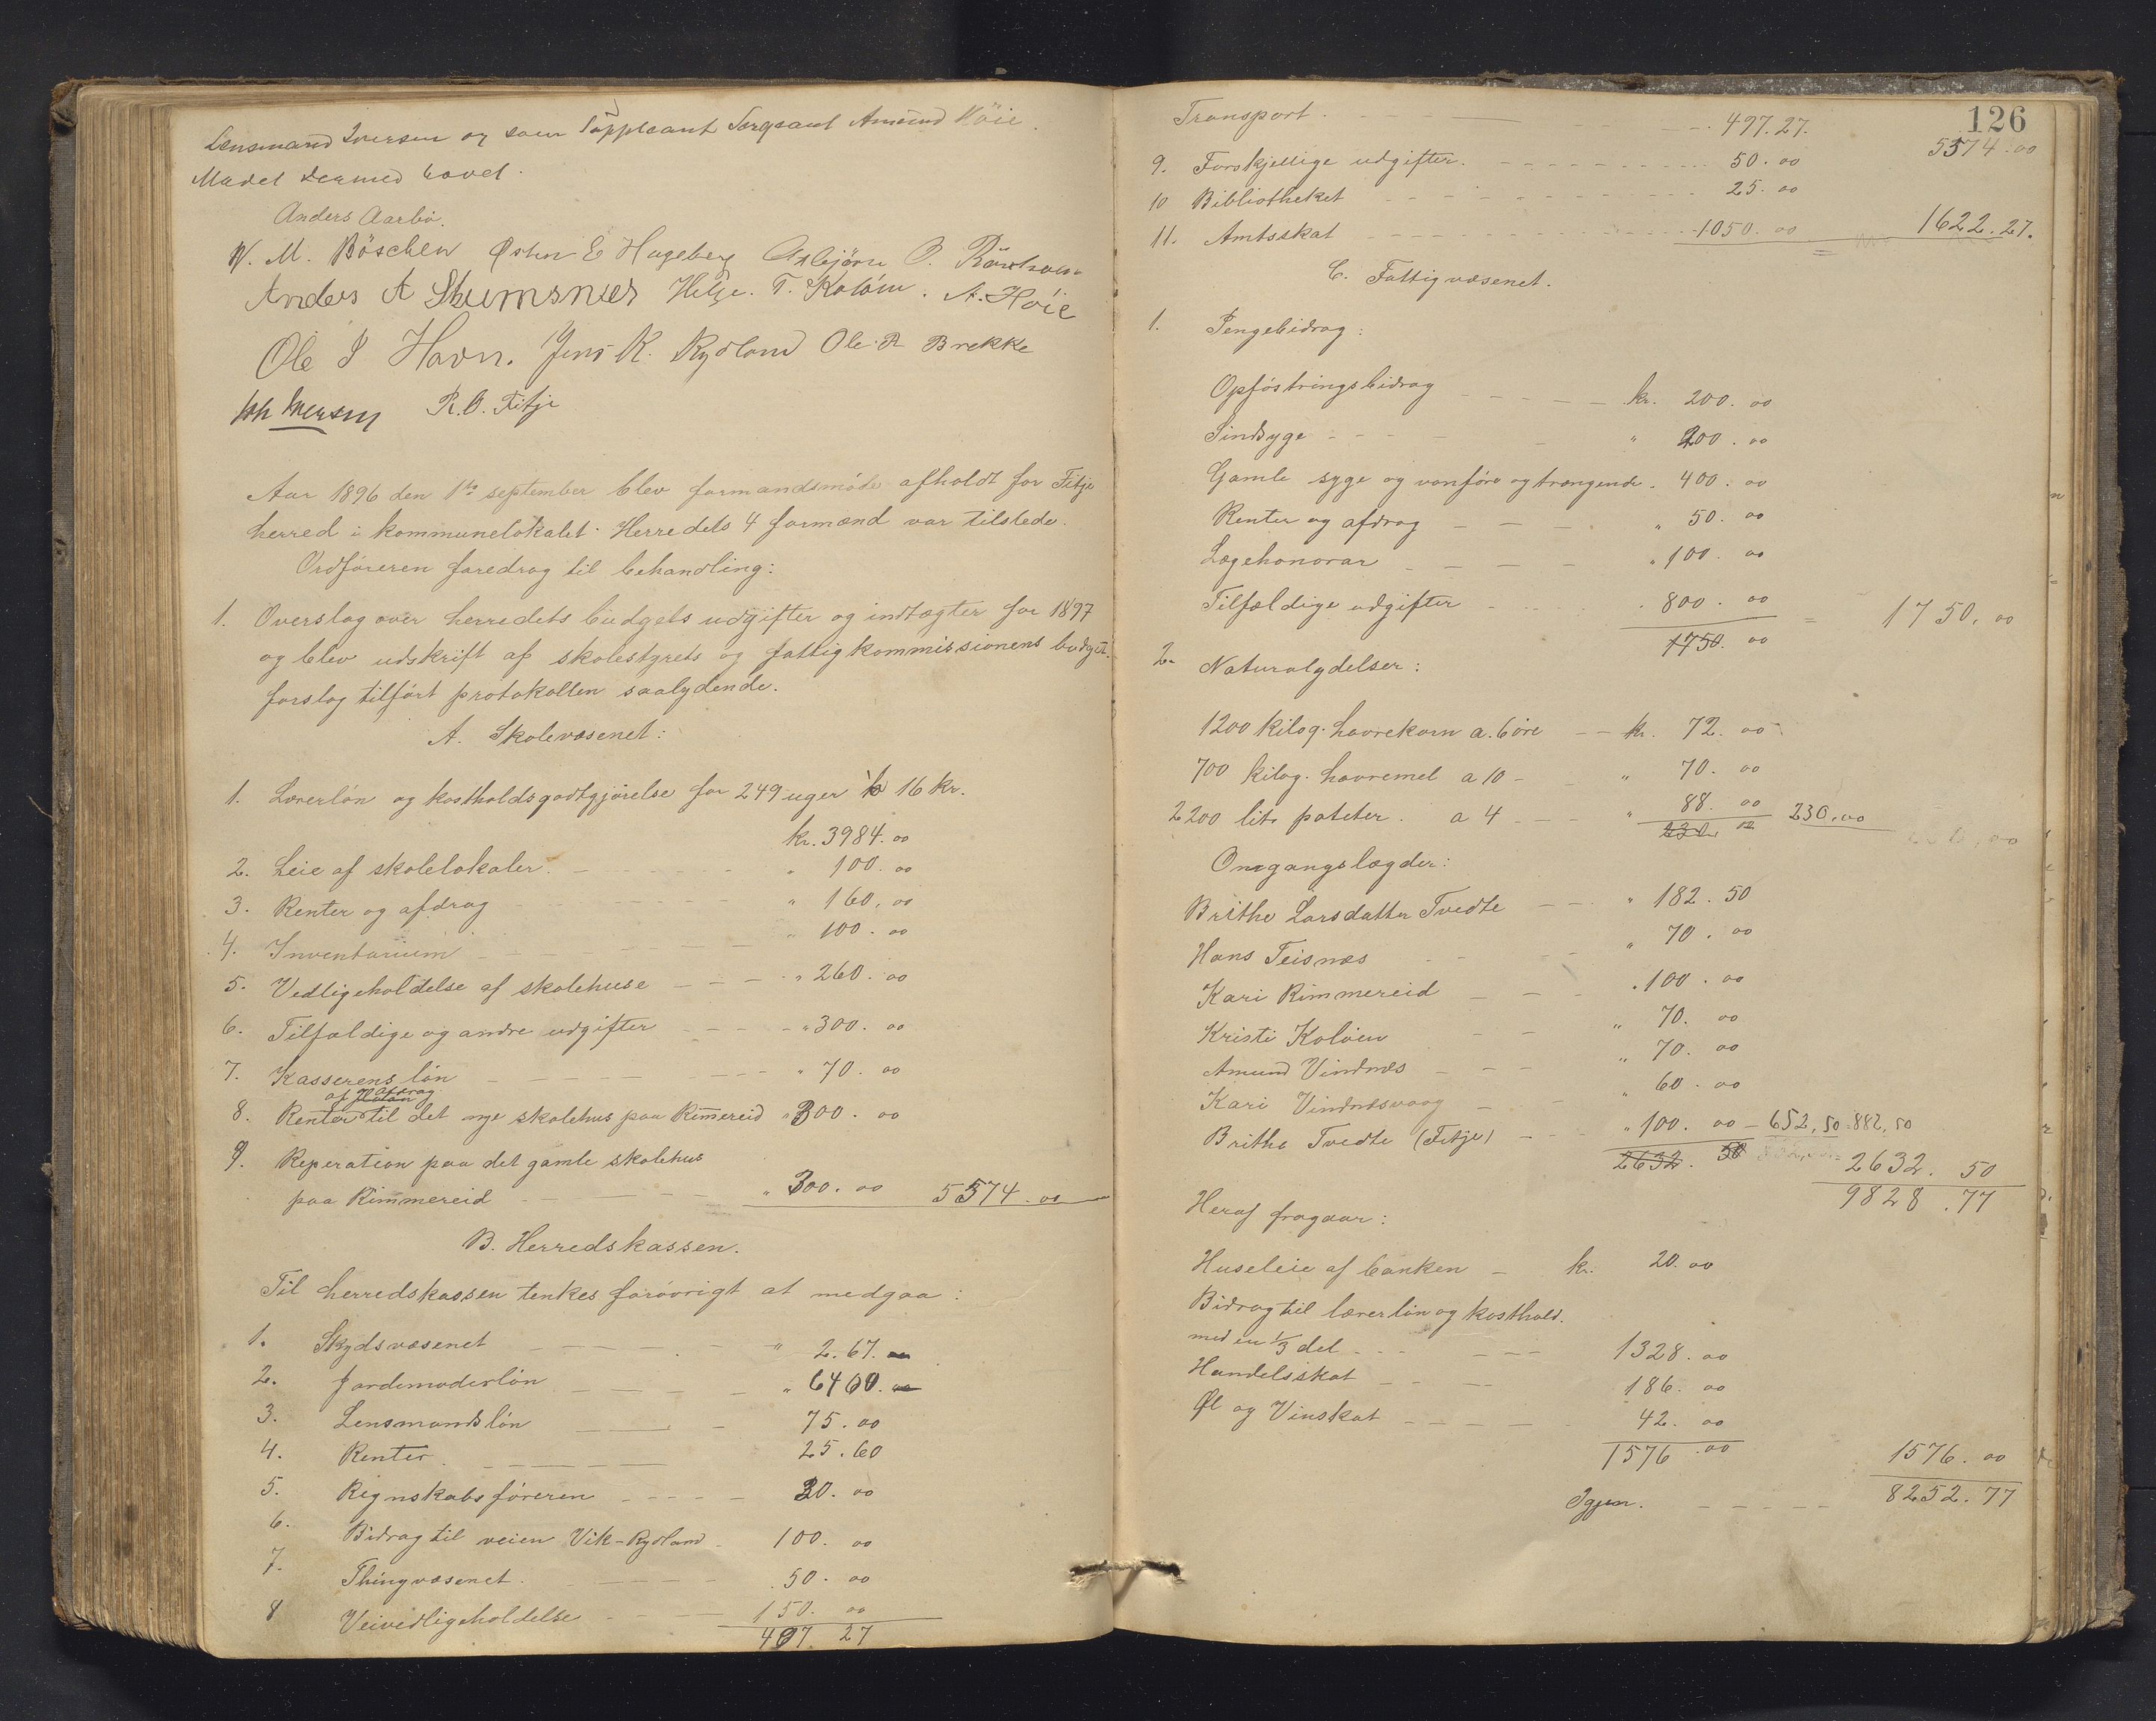 Lensmand Iversen og som Suppleant Sergeant Amund Höie.
Mödet dermed hævet.
Anders Aarbö.
W. M. Böschen Østen E Hageberg Asbjörn O.
Anders A Skumsnes Helge. T. Kolöen. A. Höie
Ole J Havn. Jens K. Rydland Ole R Brekke
Joh Iversen R. O. Fitje
Aar 1896 den 1ste september blev formandsmöde afholdt for Fitje
herred i kommunelokalet. Herredets 4 formænd var tilstede.
Ordföreren foredrog til behandling:
1. Overslag over herredets budgets udgifter og indtægter for 1897
og blev udskrift af skolestyrets og fattigkommissionens budget.
forslag tilfört protokollen saalydende.
A. Skolevæsenet:
1. Lærerlön og kostholdsgodtgjörelse for 249 uger à 16 kr.
kr. 3984. 00
2. Leie af skolelokaler. " 100. 00
3. Renter og afdrag " 160. 00
4. Inventarium " 100. 00
5. Vedligeholdelse af skolehuse " 260. 00
6. Tilfældige og andre udgifter " 300. 00
7. Kasserens lön " 70. 00
af afdrag
8. Renter til det nye skolehus paa Rimereid " 300. 00
9. Reperation paa det gamle skolehus
paa Rimmereid " 300. 00 5574. 00
B. Herredskassen.
Til herredskassen tenkes forövrigt at medgaa:
1. Skydsvæsenet " 2.67.
2. Jordemoderlön " 64 00.
3. Lensmandslön 75. 00
4. Renter. 25. 60
5. Regnskabsföreren 30. 00
6. Bidrag til veien Vik-Rydland 100. 00
7. Thingvæsenet. 50. 00
8 Veivedligeholdelse 150. 00
497. 27
126
Transport. 497. 27. 5574. 00
9. Forskjellige udgifter. 50. 00
10 Bibliotheket 25. 00
11. Amtsskat 1050. 00 1622. 27.
C. Fattigvæsenet.
1. Pengebidrag:
Opföstringsbidrag kr. 200. 00
Sindsyge " 200. 00
Gamle syge og vanföre og trængende. 400. 00
Renter og afdrag " 50. 00
Lægehonorar " 100. 00
Tilfældige udgifter 800. 00 = 1750. 00
1750. 00
2. Naturalydelser:
1200 kilog. havrekorn a. 6 öre kr. 72. 00
700 kilog. havremel a 10 - " 70. 00
2200 lit. poteter. a 4 " 88. 00 230,00
230. 00
Omgangslægder:
Brithe Larsdatter Tvedte " 182. 50
Hans Teisnæs " 70. 00
Kari Rimmereid " 100. 00
Kristi Kolöen " 70. 00
Amund Vindnæs " 70. 00
Kari Vindnæsvaag " 60. 00
Brithe Tvedte (Fitje) " 100. 00 - 652,50 882,50
2632. 50 2632. 50
9828. 77
Heraf fragaar:
Huseleie af banken kr. 20. 00
Bidrag til lærerlön og kosthold.
med en 1/3 del 1328. 00
Handelsskat 186. 00
Øl og Vinskat 42. 00
1576. 00 1576. 00
Igjen. 8252. 77